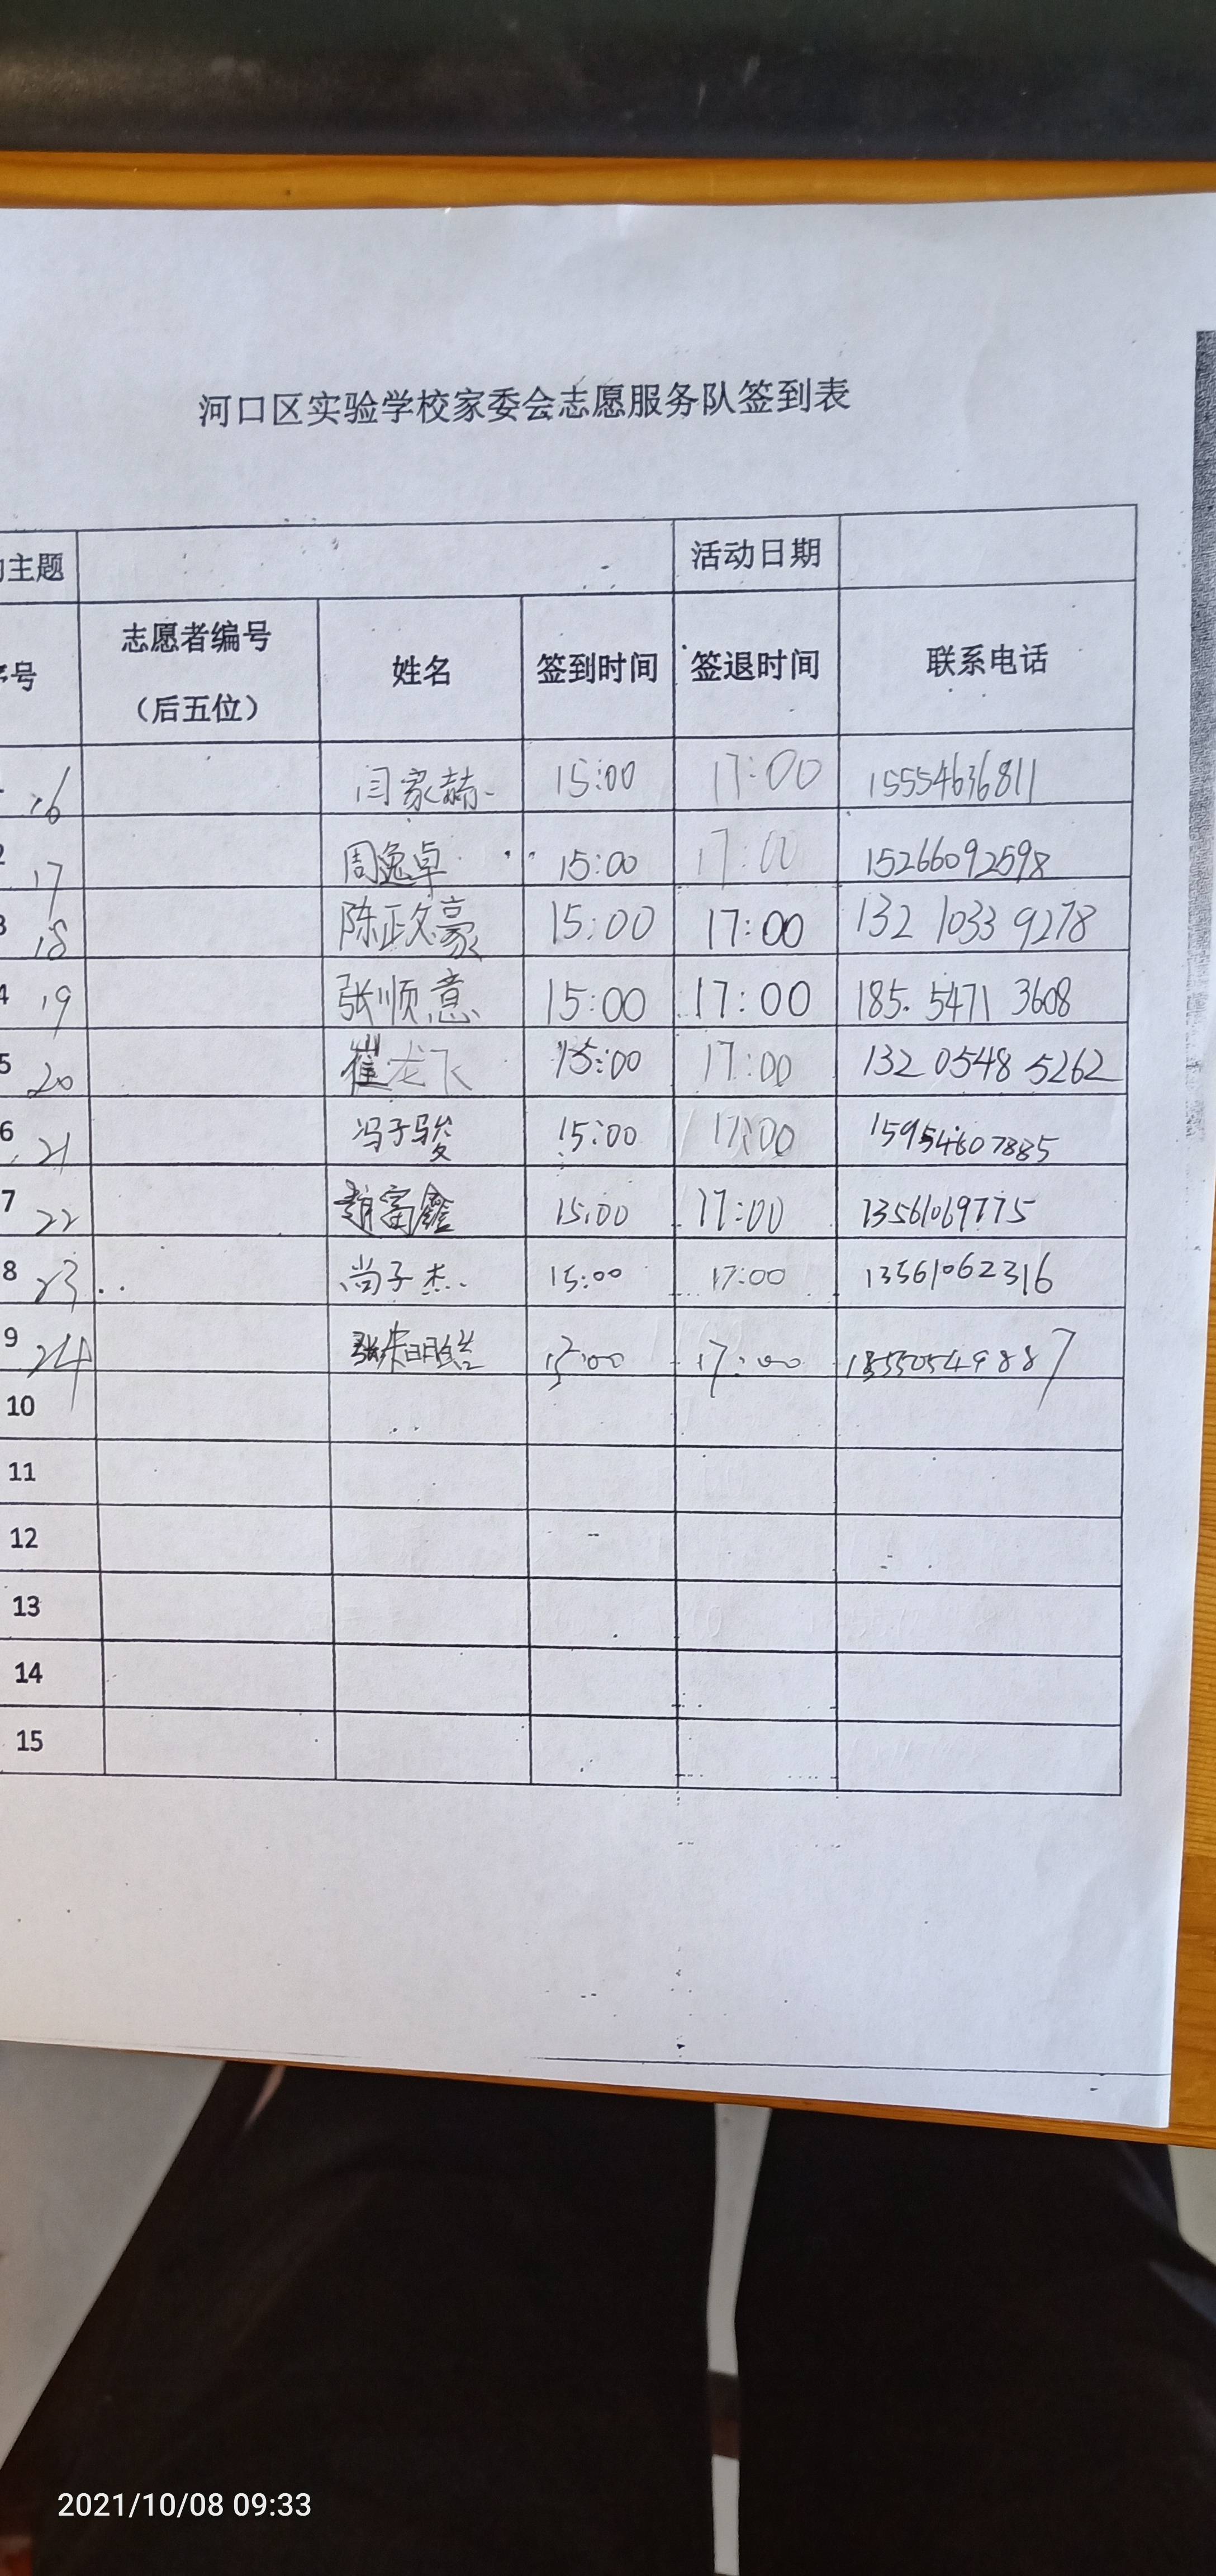 河口区实验学校家委会志愿服务队签到表
主题 活动日期
号 志愿者编号（后五位） 姓名 签到时间 签退时间 联系电话
16 闫家赫 15:00 17:00 15554636811
2 17 周逸卓 15:00 17:00 15266092598
3 18 陈政豪 15:00 17:00 132 1033 9278
4 19 张顺意 15:00 17:00 185. 5471 3608
5 20 崔龙飞 15:00 17:00 132 0548 5262
6 21 冯子骏 15:00 17:00 15954607885
7 22 赵富鑫 15:00 17:00 13561069775
8 23 尚子杰 15:00 17:00 13561062316
9 24 17:00 18550549887
10
11
12
13
14
15
2021/10/08 09:33